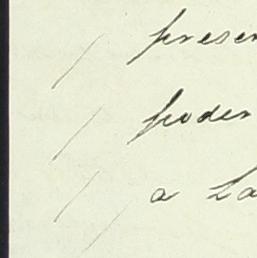 presen
poder
a La